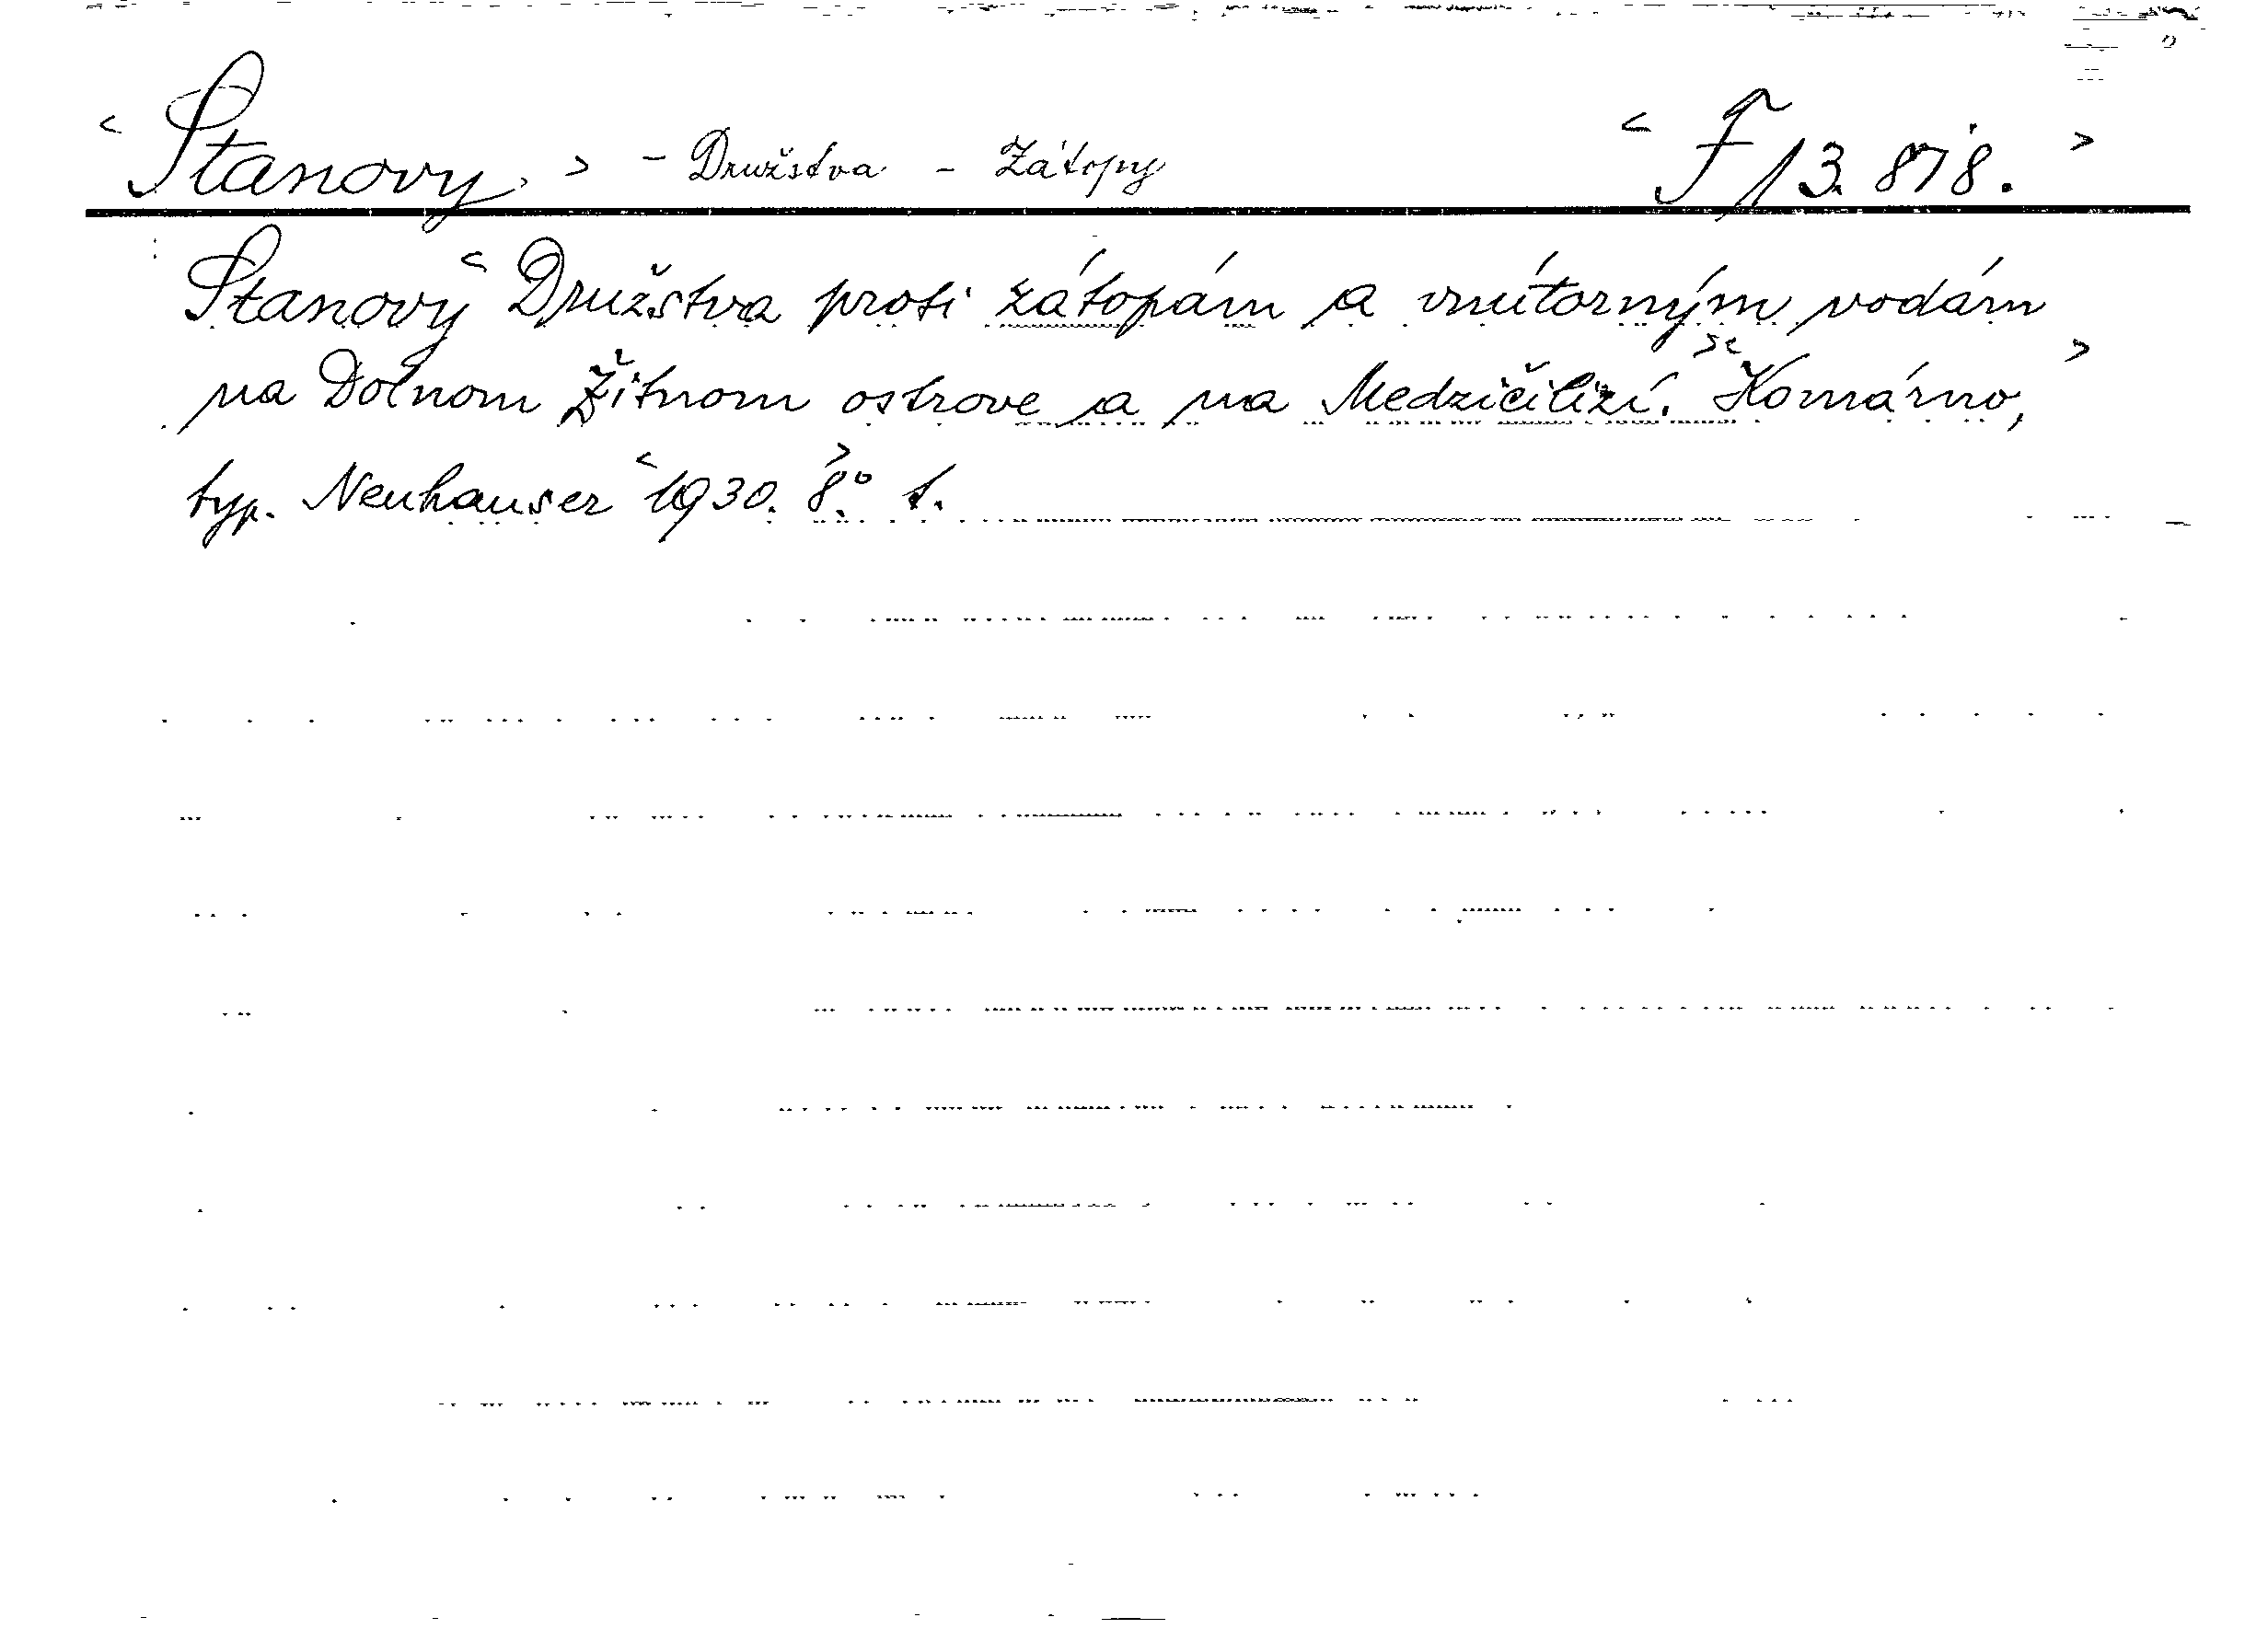 < Stanovy. > - Družstva - Zátopy < F 13.878. >
Stanovy < Družstva proti zátopám a vnútorným vodám
na Dolnom Žitnom ostrove a na Medzičilizí. >< Komárno, >
typ. Neuhauser < 1930. > 8.° t.